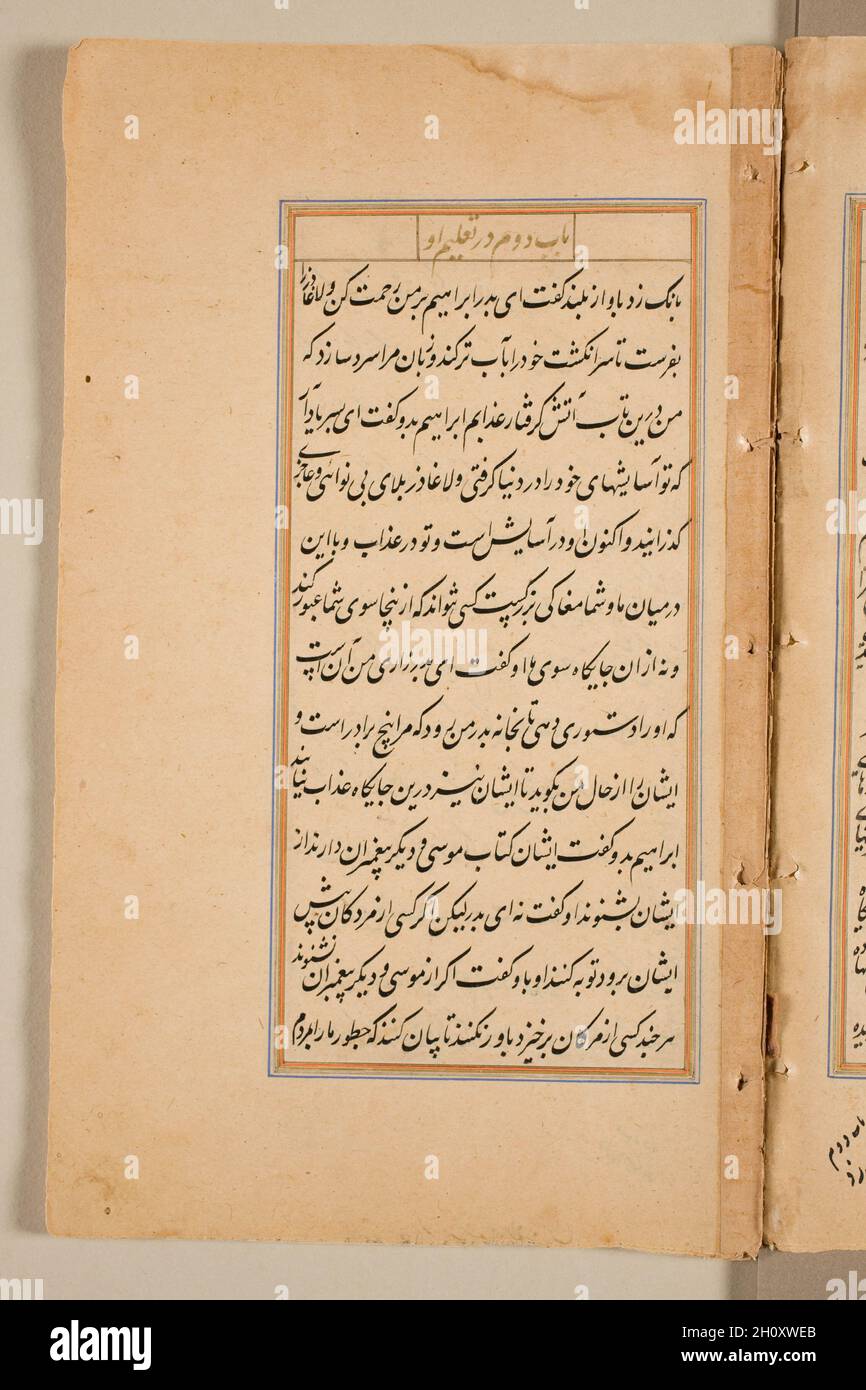 باب دوم در تعلیم او
بانک زد باواز بلند کفت ای پدر ابراهیم بر من رحمت کن و لاغاذر را
بفرست تا سر انکشت خود را بآب تر کند و زبان مرا سرد سازد که
من درین تاب آتش کرفتار عذابم ابراهیم بدو کفت ای پسر یاد آر
که تو آسایشهای خود را در دنیا کرفتی و لاغاذر بلای بی نوائی و عاجزی
کذرانید و اکنون او در آسایش است و تو در عذاب و با این
در میان ما و شما مغاکی بزرکیست کسی نتواند که از ینجا سوی شما عبور کند
و نه از ان جایکاه سوی ما او کفت ای پدر زاری من آن است
که او را دستوری دهی تا بخانه پدر من برود که مرا پنج برادر است و
ایشان را از حال من بکوید تا ایشان نیز درین جایکاه عذاب نیایند
ابراهیم بدو کفت ایشان کتاب موسی و دیکر پیغمبران دارند از
ایشان بشنوند او کفت نه ای پدر لیکن اکر کسی از مردکان پیش
ایشان برود توبه کنند او باو کفت اکر از موسی و دیکر پیغمبران نشنوند
هر چند کسی از مرکان برخیزد باور نکنند تا بیان کنند که چطور ما را بمردم
alamy
Image ID: 2H0XWEB
www.alamy.com